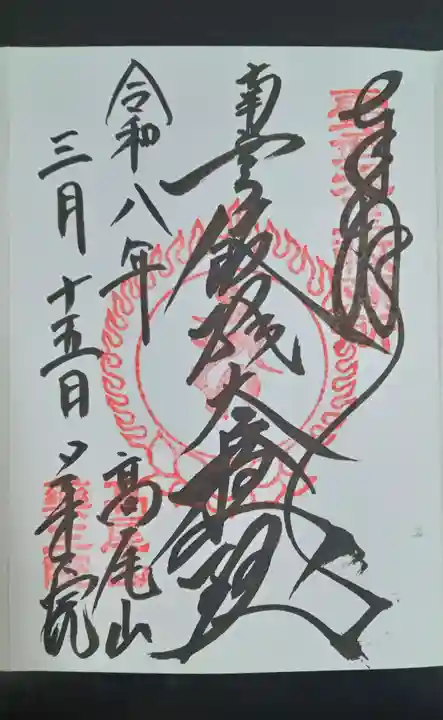 奉拝
南無飯縄大権現
令和八年
三月十五日
高尾山
薬王院